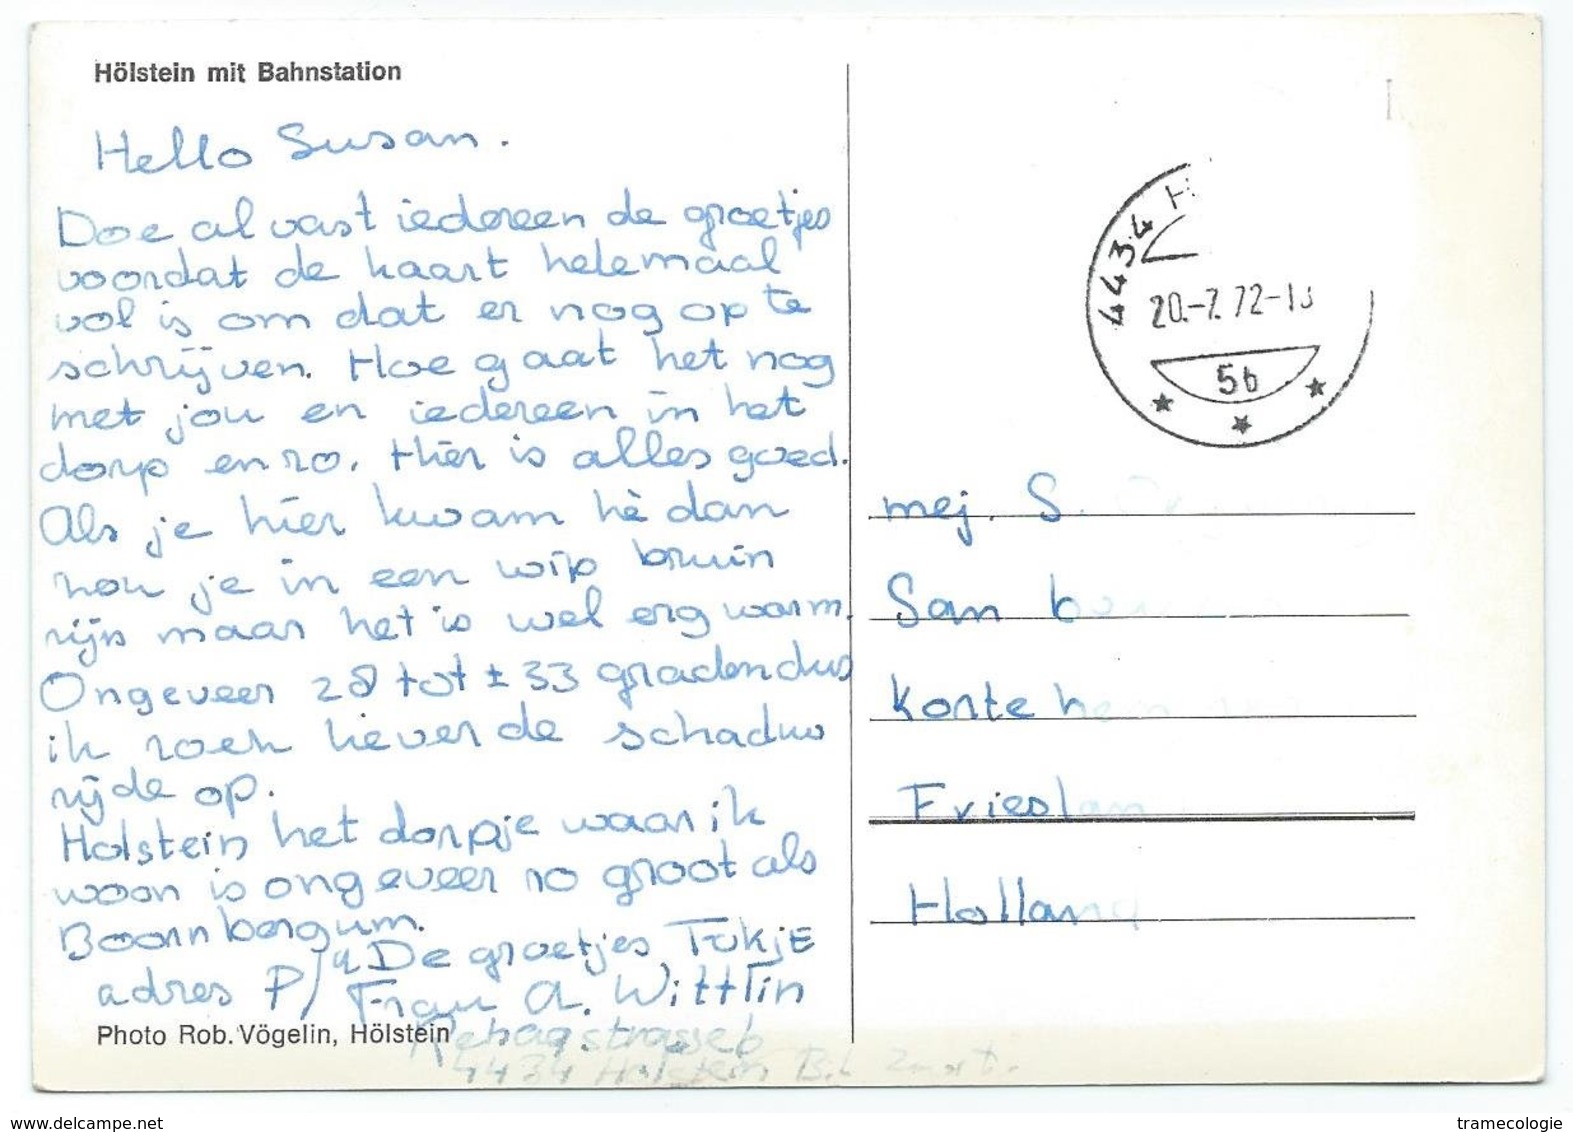 Hölstein mit Bahnstation
Hello Susan.
Doe al vast iedereen de groetjes
voordat de kaart helemaal
vol is om dat er nog op te
schrijven. Hoe gaat het nog
met jou en iedereen in het
dorp en zo. Hier is alles goed.
Als je hier kwam hè dan
zou je in een wip bruin
zijn maar het is wel erg warm.
Ongeveer 28 tot ± 33 graden dus
ik zoek liever de schaduw
zijde op.
Holstein het dorpje waar ik
woon is ongeveer zo groot als
Boornbergum.
De groetjes TukjE
adres P/a Frau A. Wittlin
Photo Rob. Vögelin, Hölstein
Rehagstrasse 6
4434 Holstein B.L
4434 H
20.-7.72-1
5b
mej. S.
San
Korte
Frieslan
Holland
delcampe.net
tramecologie